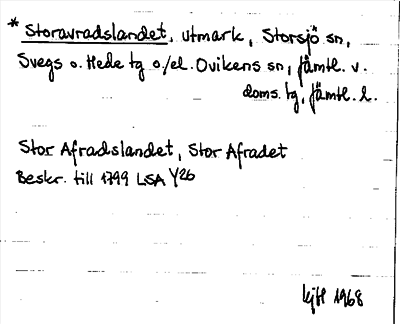 * Storavradslandet, utmark, Storsjö sn,
Svegs o. Hede tg o./el. Ovikens sn, Jämtl. v.
doms. tg, Jämtl. l.
Stor Afradslandet, Stor Afradet
Beskr. till 1799 LSA Y26
1968